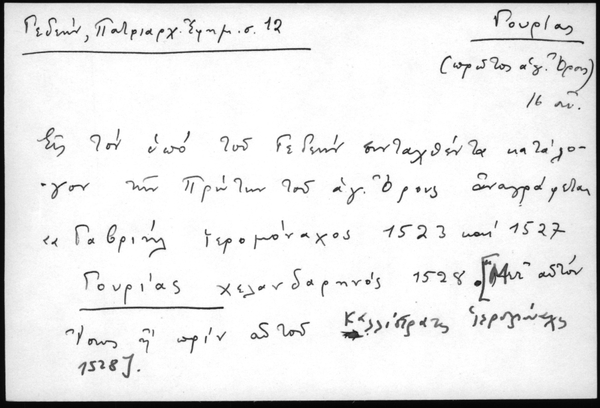 Γεδεών, Πατριαρχ. Ἐφημ. σ. 12
Γουρίας
(πρῶτος ἁγ. Ὄρους)
16 αἰ.
Εἰς τὸν ὑπὸ τοῦ Γεδεὼν συνταχθέντα κατάλο-
γον τῶν Πρώτων τοῦ ἁγ. Ὄρους ἀναγράφεται
«Γαβριὴλ ἱερομόναχος 1523 καὶ 1527
Γουρίας χελανδαρηνός 1528. [Μετ' αὐτὸν
ἴσως ἢ πρὶν αὐτοῦ Καλλίστρατος ἱερομόναχος
1528].